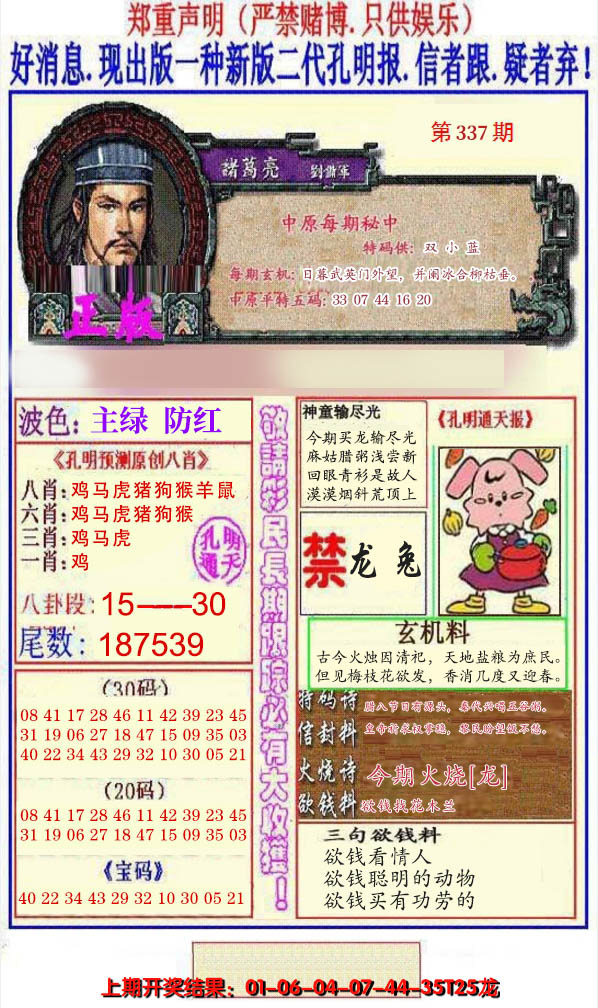 郑重声明（严禁赌博.只供娱乐）
好消息.现出版一种新版二代孔明报.信者跟.疑者弃！
第337期
諸葛亮 劉備軍
中原每期秘中
特码供：双小蓝
每期玄机：日暮武英门外望，并阑冰合柳枯垂。
中原平特五码：33 07 44 16 20
正版
波色：主绿 防红
《孔明预测原创八肖》
八肖：鸡马虎猪狗猴羊鼠
六肖：鸡马虎猪狗猴
三肖：鸡马虎
一肖：鸡
孔明通天
八卦段：15——30
尾数：187539
（30码）
08 41 17 28 46 11 42 39 23 45
31 19 06 27 18 47 15 09 35 03
40 22 34 43 29 32 10 30 05 21
（20码）
08 41 17 28 46 11 42 39 23 45
31 19 06 27 18 47 15 09 35 03
《宝码》
40 22 34 43 29 32 10 30 05 21
敬請彩民長期跟踪必有大收獲！
神童输尽光
今期买龙输尽光
麻姑腊粥浅尝新
回眼青衫是故人
漠漠烟斜荒顶上
《孔明通天报》
禁 龙 兔
玄机料
古今火烛因清祀，天地盐粮为庶民。
但见梅枝花欲发，香消几度又迎春。
特码诗 腊八节日有源头，秦代兴喝五谷粥。
信封料 皇帝祈求权掌稳，移民盼望饭不愁。
火烧诗 今期火烧[龙]
欲钱料 欲钱找花木兰
三句欲钱料
欲钱看情人
欲钱聪明的动物
欲钱买有功劳的
上期开奖结果：01-06-04-07-44-35T25龙